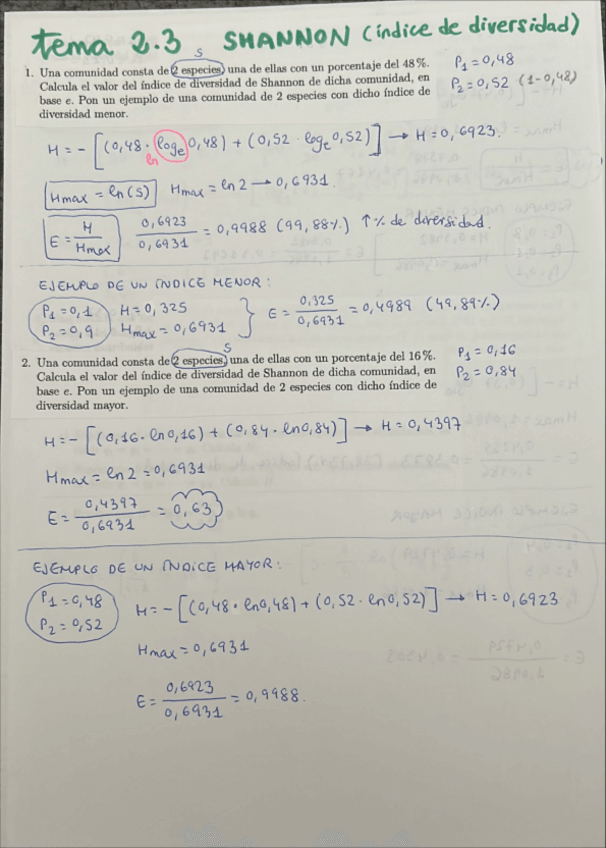 tema 2.3 SHANNON (índice de diversidad)
S
1. Una comunidad consta de 2 especies, una de ellas con un porcentaje del 48%. P1 = 0,48
Calcula el valor del índice de diversidad de Shannon de dicha comunidad, en P2 = 0,52 (1-0,48)
base e. Pon un ejemplo de una comunidad de 2 especies con dicho índice de
diversidad menor.
H = - [(0,48 · loge 0,48) + (0,52 · loge 0,52)] → H = 0,6923
ln
Hmax = ln(S) Hmax = ln 2 → 0,6931
E = H / Hmax 0,6923 / 0,6931 = 0,9988 (99,88%) ↑% de diversidad.
EJEMPLO DE UN ÍNDICE MENOR:
P1 = 0,1 H = 0,325
P2 = 0,9 Hmax = 0,6931 } E = 0,325 / 0,6931 = 0,4989 (49,89%)
S
2. Una comunidad consta de 2 especies, una de ellas con un porcentaje del 16%. P1 = 0,16
Calcula el valor del índice de diversidad de Shannon de dicha comunidad, en P2 = 0,84
base e. Pon un ejemplo de una comunidad de 2 especies con dicho índice de
diversidad mayor.
H = - [(0,16 · ln 0,16) + (0,84 · ln 0,84)] → H = 0,4397
Hmax = ln 2 = 0,6931
E = 0,4397 / 0,6931 = 0,63
EJEMPLO DE UN ÍNDICE MAYOR:
P1 = 0,48
P2 = 0,52 H = - [(0,48 · ln 0,48) + (0,52 · ln 0,52)] → H = 0,6923
Hmax = 0,6931
E = 0,6923 / 0,6931 = 0,9988.